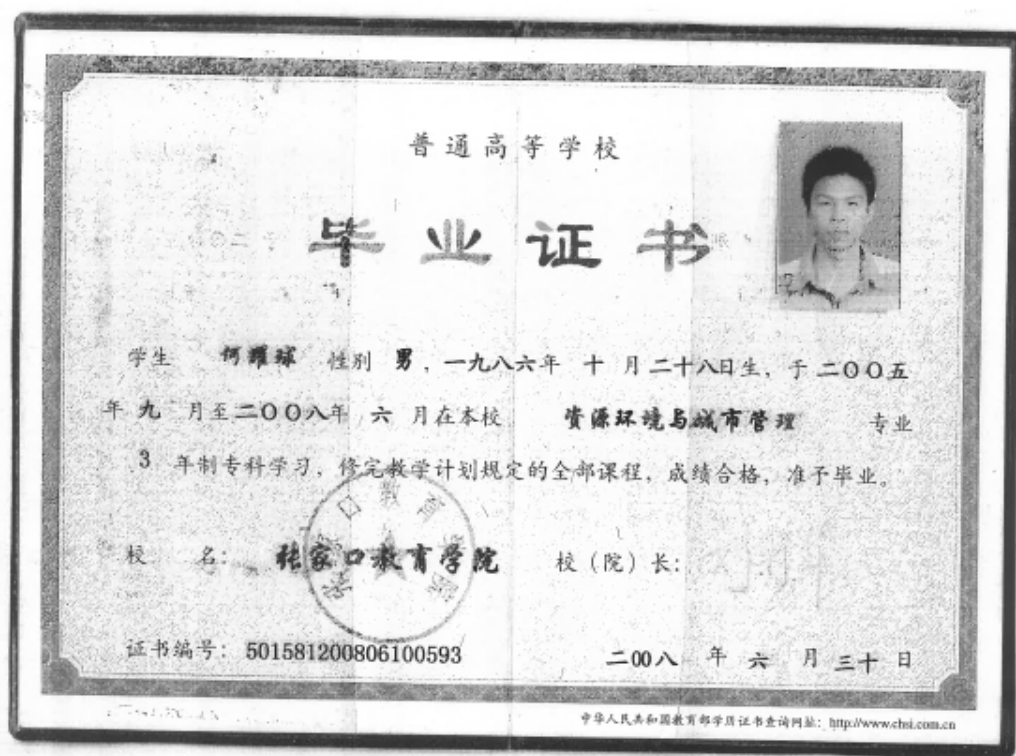 普通高等学校
毕业证书
学生 何耀球 性别 男，一九八六年 十 月二十八日生，于二〇〇五
年 九 月至二〇〇八年 六 月在本校 资源环境与城市管理 专业
3 年制专科学习，修完教学计划规定的全部课程，成绩合格，准予毕业。
校 名： 张家口教育学院 校（院）长：
证书编号：501581200806100593 二00八 年 六 月 三十 日
中华人民共和国教育部学历证书查询网址：http://www.chsi.com.cn